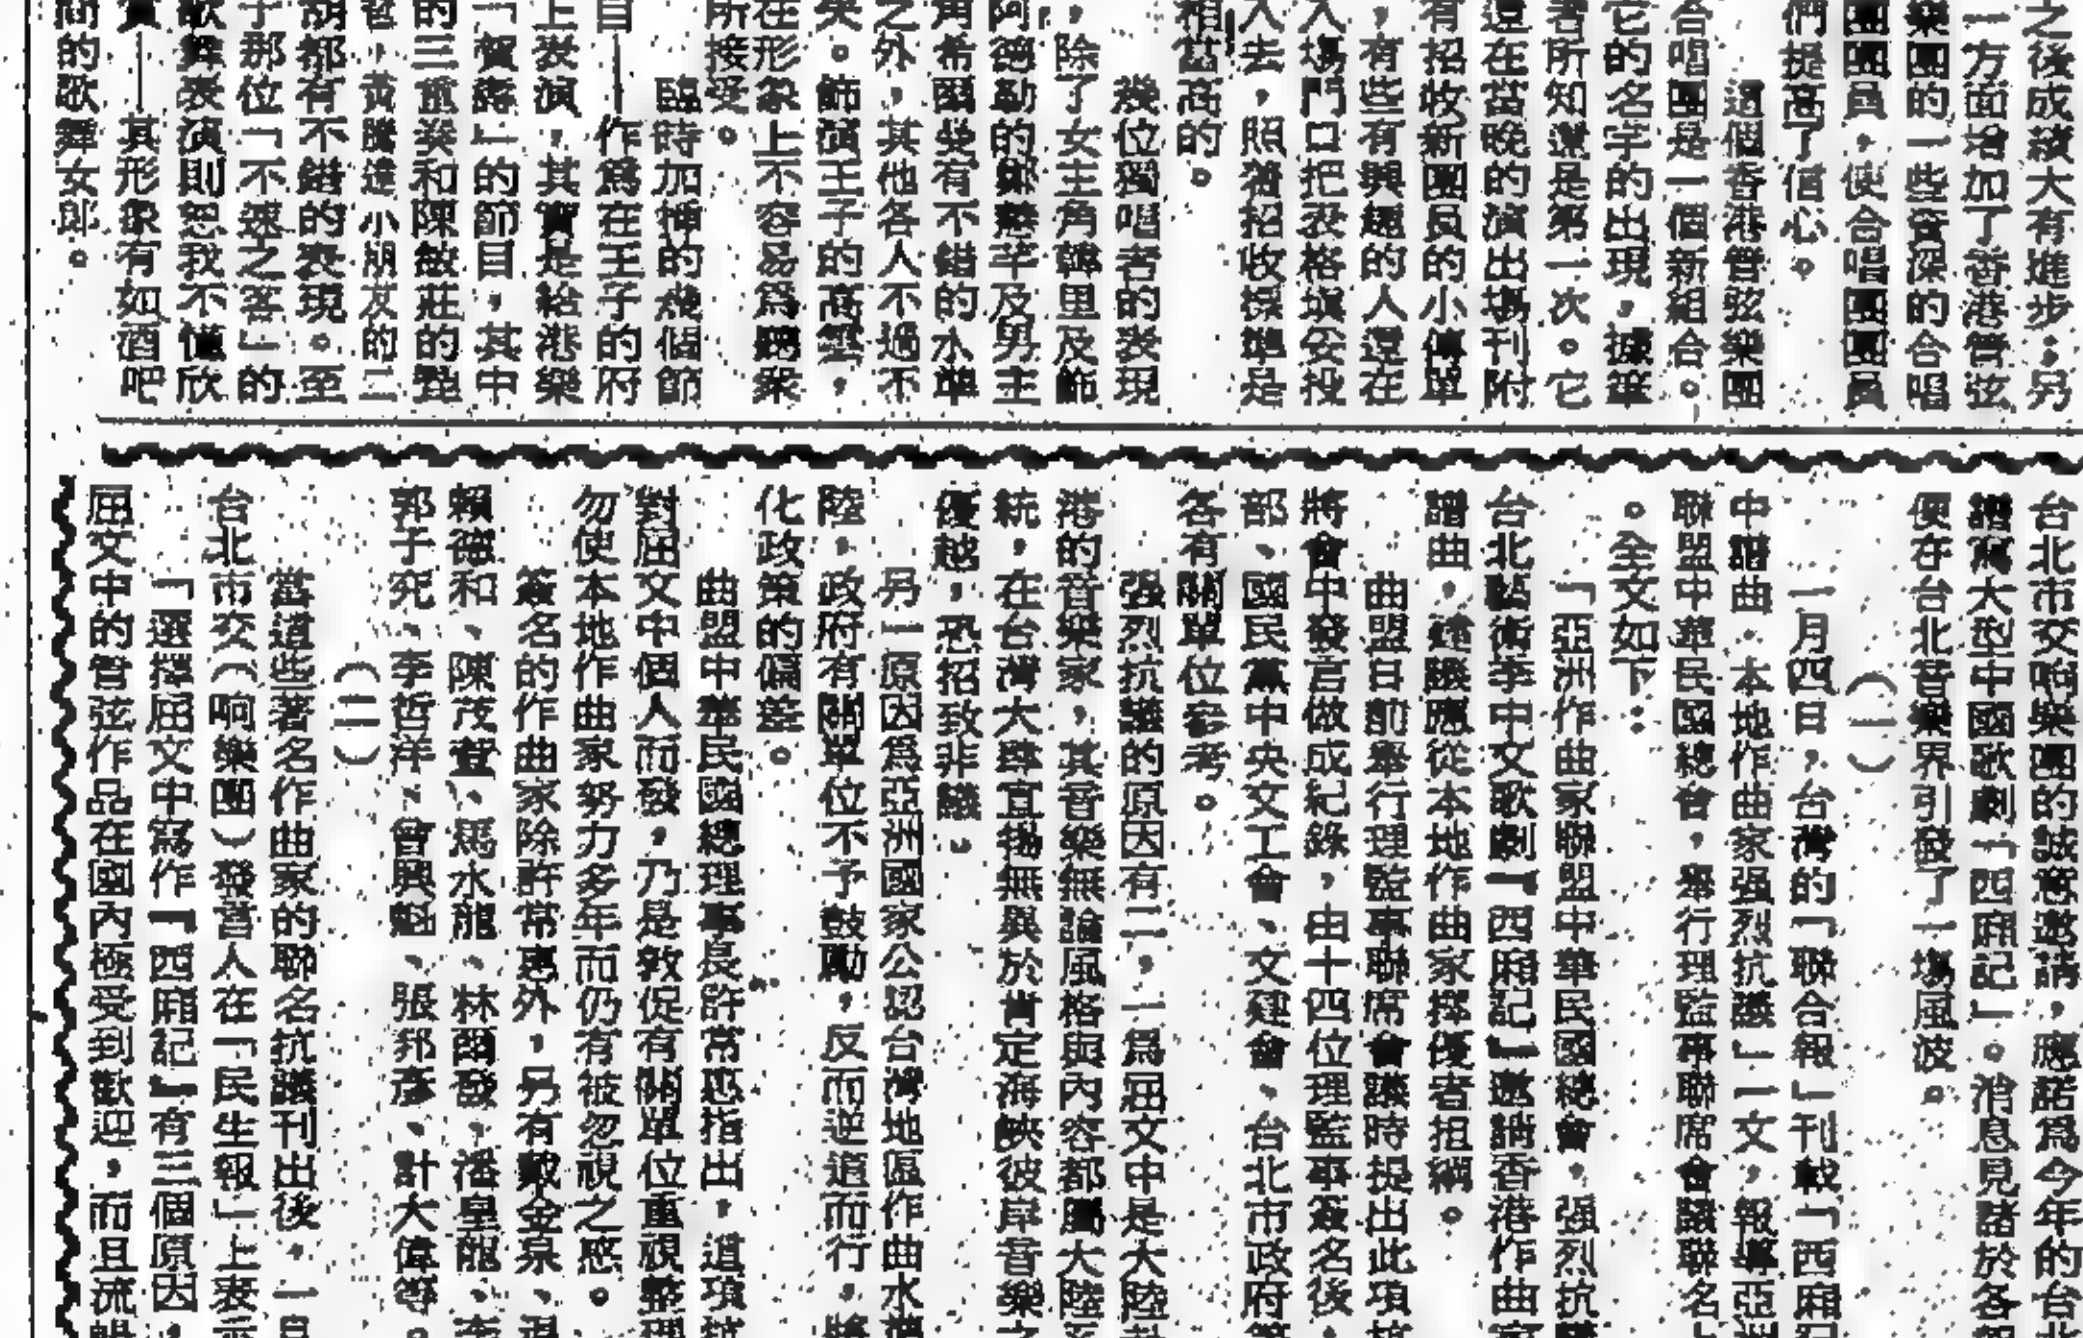 之後成績大有進步；另
一方面增加了香港管弦
樂團的一些資深的合唱
團團員，使合唱團團員
們提高了信心。
這個香港管弦樂團
合唱團是一個新組合。
它的名字的出現，據筆
者所知還是第一次。它
還在當晚的演出場刊附
有招收新團員的小傳單
，有些有興趣的人還在
入場門口把表格填妥投
入去，照着招收標準是
相當高的。
幾位獨唱者的表現
，除了女主角韓里及飾
阿德勒的鄭慧芊及男主
角希爾曼有不錯的水準
之外，其他各人不過不
失。飾演王子的高聲，
在形象上不容易爲聽衆
所接受。
臨時加插的幾個節
目——作爲在王子的府
上表演，其實是給港樂
「賀壽」的節目，其中
的三重奏和陳敏莊的
，黃騰達小朋友的二
胡都有不錯的表現。至
于那位「不速之客」的
歌舞表演則恕我不懂欣
賞——其形象有如酒吧
間的歌舞女郎。
台北市交响樂團的誠意邀請，應諾爲今年的台北
譜寫大型中國歌劇「西廂記」。消息見諸於各
便在台北音樂界引發了一場風波。
（一）
一月四日，台灣的「聯合報」刊載「西廂記
中譜曲．本地作曲家强烈抗議」一文，報導亞洲
聯盟中華民國總會，舉行理監事聯席會議聯名
。全文如下：
「亞洲作曲家聯盟中華民國總會，强烈抗議
台北藝術季中文歌劇『西廂記』邀請香港作曲家
譜曲，建議應從本地作曲家擇優者担綱。
曲盟日前舉行理監事聯席會議時提出此項抗
將會中發言做成紀錄，由十四位理監事簽名後，
部、國民黨中央文工會、文建會、台北市政府等
各有關單位參考。
强烈抗議的原因有二，一爲屈文中是大陸
港的音樂家，其音樂無論風格與內容都屬大陸系
統，在台灣大肆宣揚無異於肯定海峽彼岸音樂之
優越，恐招致非議。
另一原因爲亞洲國家公認台灣地區作曲水準
陸，政府有關單位不予鼓勵，反而逆道而行，將
化政策的偏差。
曲盟中華民國總理事長許常惠指出，這項抗
對屈文中個人而發，乃是敦促有關單位重視整理
勿使本地作曲家努力多年而仍有被忽視之感。
簽名的作曲家除許常惠外，另有戴金泉、溫
賴德和、陳茂萱、馬水龍、林爾發、潘皇龍、李
郭子究、李哲洋、曾興魁、張邦彥、計大偉等。
（二）
當這些著名作曲家的聯名抗議刊出後，一自
台北市交（响樂團）發言人在「民生報」上表示
「選擇屈文中寫作『西廂記』有三個原因，
屈文中的管弦作品在國內極受到歡迎，而且流暢